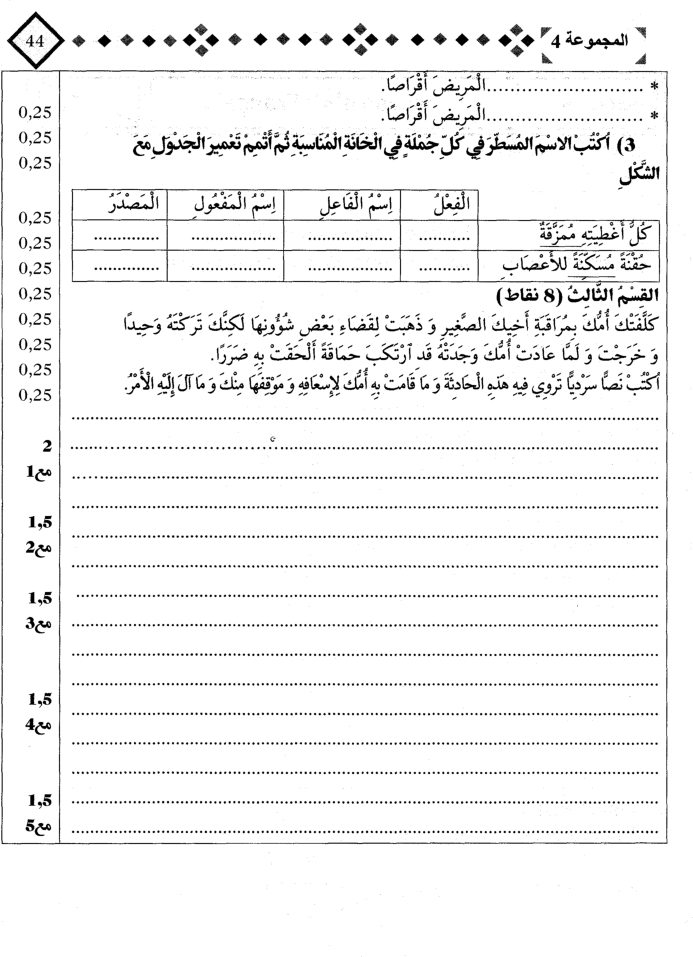 44
المجموعة 4
* ............................الْمَرِيضَ أَقْرَاصًا.
* ............................الْمَرِيضَ أَقْرَاصًا.
0,25
3) اُكْتُبْ الاسْمَ المُسَطَّرَ فِي كُلِّ جُمْلَةٍ فِي الْخَانَةِ الْمُنَاسِبَةِ ثُمَّ أَتْمِمْ تَعْمِيرَ الْجَدْوَلِ مَعَ
0,25
الشَّكْلِ
0,25
الْفِعْلُ
اِسْمُ الْفَاعِلِ
اِسْمُ الْمَفْعُولِ
الْمَصْدَرُ
0,25
كُلُّ أَغْطِيَتِهِ مُمَزَّقَةٌ
...........
..................
..................
..............
0,25
حُقْنَةً مُسَكِّنَةً للأَعْصَابِ
...........
..................
..................
..............
0,25
القِسْمُ الثَّالِثُ (8 نقاط)
0,25
كَلَّفَتْكَ أُمُّكَ بِمُرَاقَبَةِ أَخِيكَ الصَّغِيرِ وَ ذَهَبَتْ لِقَضَاءِ بَعْضِ شُؤُونِهَا لَكِنَّكَ تَرَكْتَهُ وَحِيدًا
0,25
وَ خَرَجْتَ وَ لَمَّا عَادَتْ أُمُّكَ وَجَدَتْهُ قَد ارْتَكَبَ حَمَاقَةً أَلْحَقَتْ بِهِ ضَرَرًا.
0,25
اُكْتُبْ نَصًّا سَرْدِيًّا تَرْوِي فِيهِ هَذِهِ الْحَادِثَةَ وَ مَا قَامَتْ بِهِ أُمُّكَ لِإِسْعَافِهِ وَ مَوْقِفَهَا مِنْكَ وَ مَا آلَ إِلَيْهِ الْأَمْرُ.
0,25
0,25
2
مع1
1,5
مع2
1,5
مع3
1,5
مع4
1,5
مع5